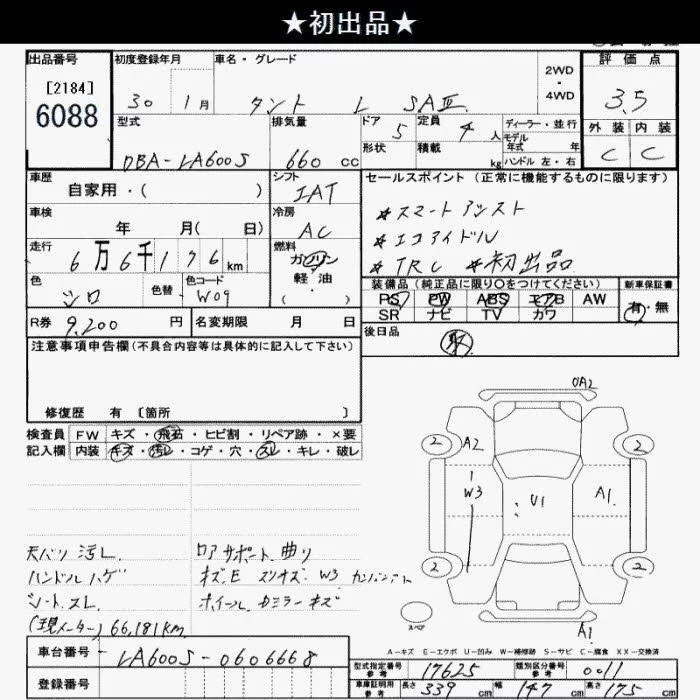 ★初出品★
出品番号 初度登録年月 車名・グレード 2WD・4WD 評価点
[2184]
6088
30 1月 タント L SAⅢ 3.5
外装 内装
C C
型式 排気量 ドア 5 定員 4人 ディーラー・並行
モデル年式 年
DBA-LA600S 660 cc 形状 積載 kg ハンドル 左・右
車歴 シフト セールスポイント (正常に機能するものに限ります)
自家用・( ) IAT
＊スマートアシスト
車検 冷房
年 月( 日) AC
＊エコアイドル
走行 燃料
6万6千176km ガソリン・軽油( )
＊TRC ＊初出品
色 色替 色コード
シロ W09
装備品(純正品に限り○をつけてください) 新車保証書
PS PW ABS エアB AW 有・無
SR ナビ TV カワ
R券 9,200円 名変期限 月 日
後日品
取
注意事項申告欄(不具合内容等は具体的に記入して下さい)
修復歴 有 [箇所 ]
検査員 FW キズ・飛石・ヒビ割・リペア跡・×要
記入欄 内装 キズ・汚レ・コゲ・穴・スレ・キレ・破レ
UA2
2 A2 2
W3 U1 A1
2 2
スペア
A1
天バリ 汚レ ロアサポート 曲り
ハンドル ハゲ
シートスレ ホイール
(現メーター) 66,181km
A-キズ E-エクボ U-凹み W-補修跡 S-サビ C-腐食 XX-交換済
車台番号 LA600S-0606668
登録番号
型式指定番号 参考 17625 類別区分番号 参考 0011
車庫証明用 参考 長さ 339cm 幅 147cm 高さ 175cm